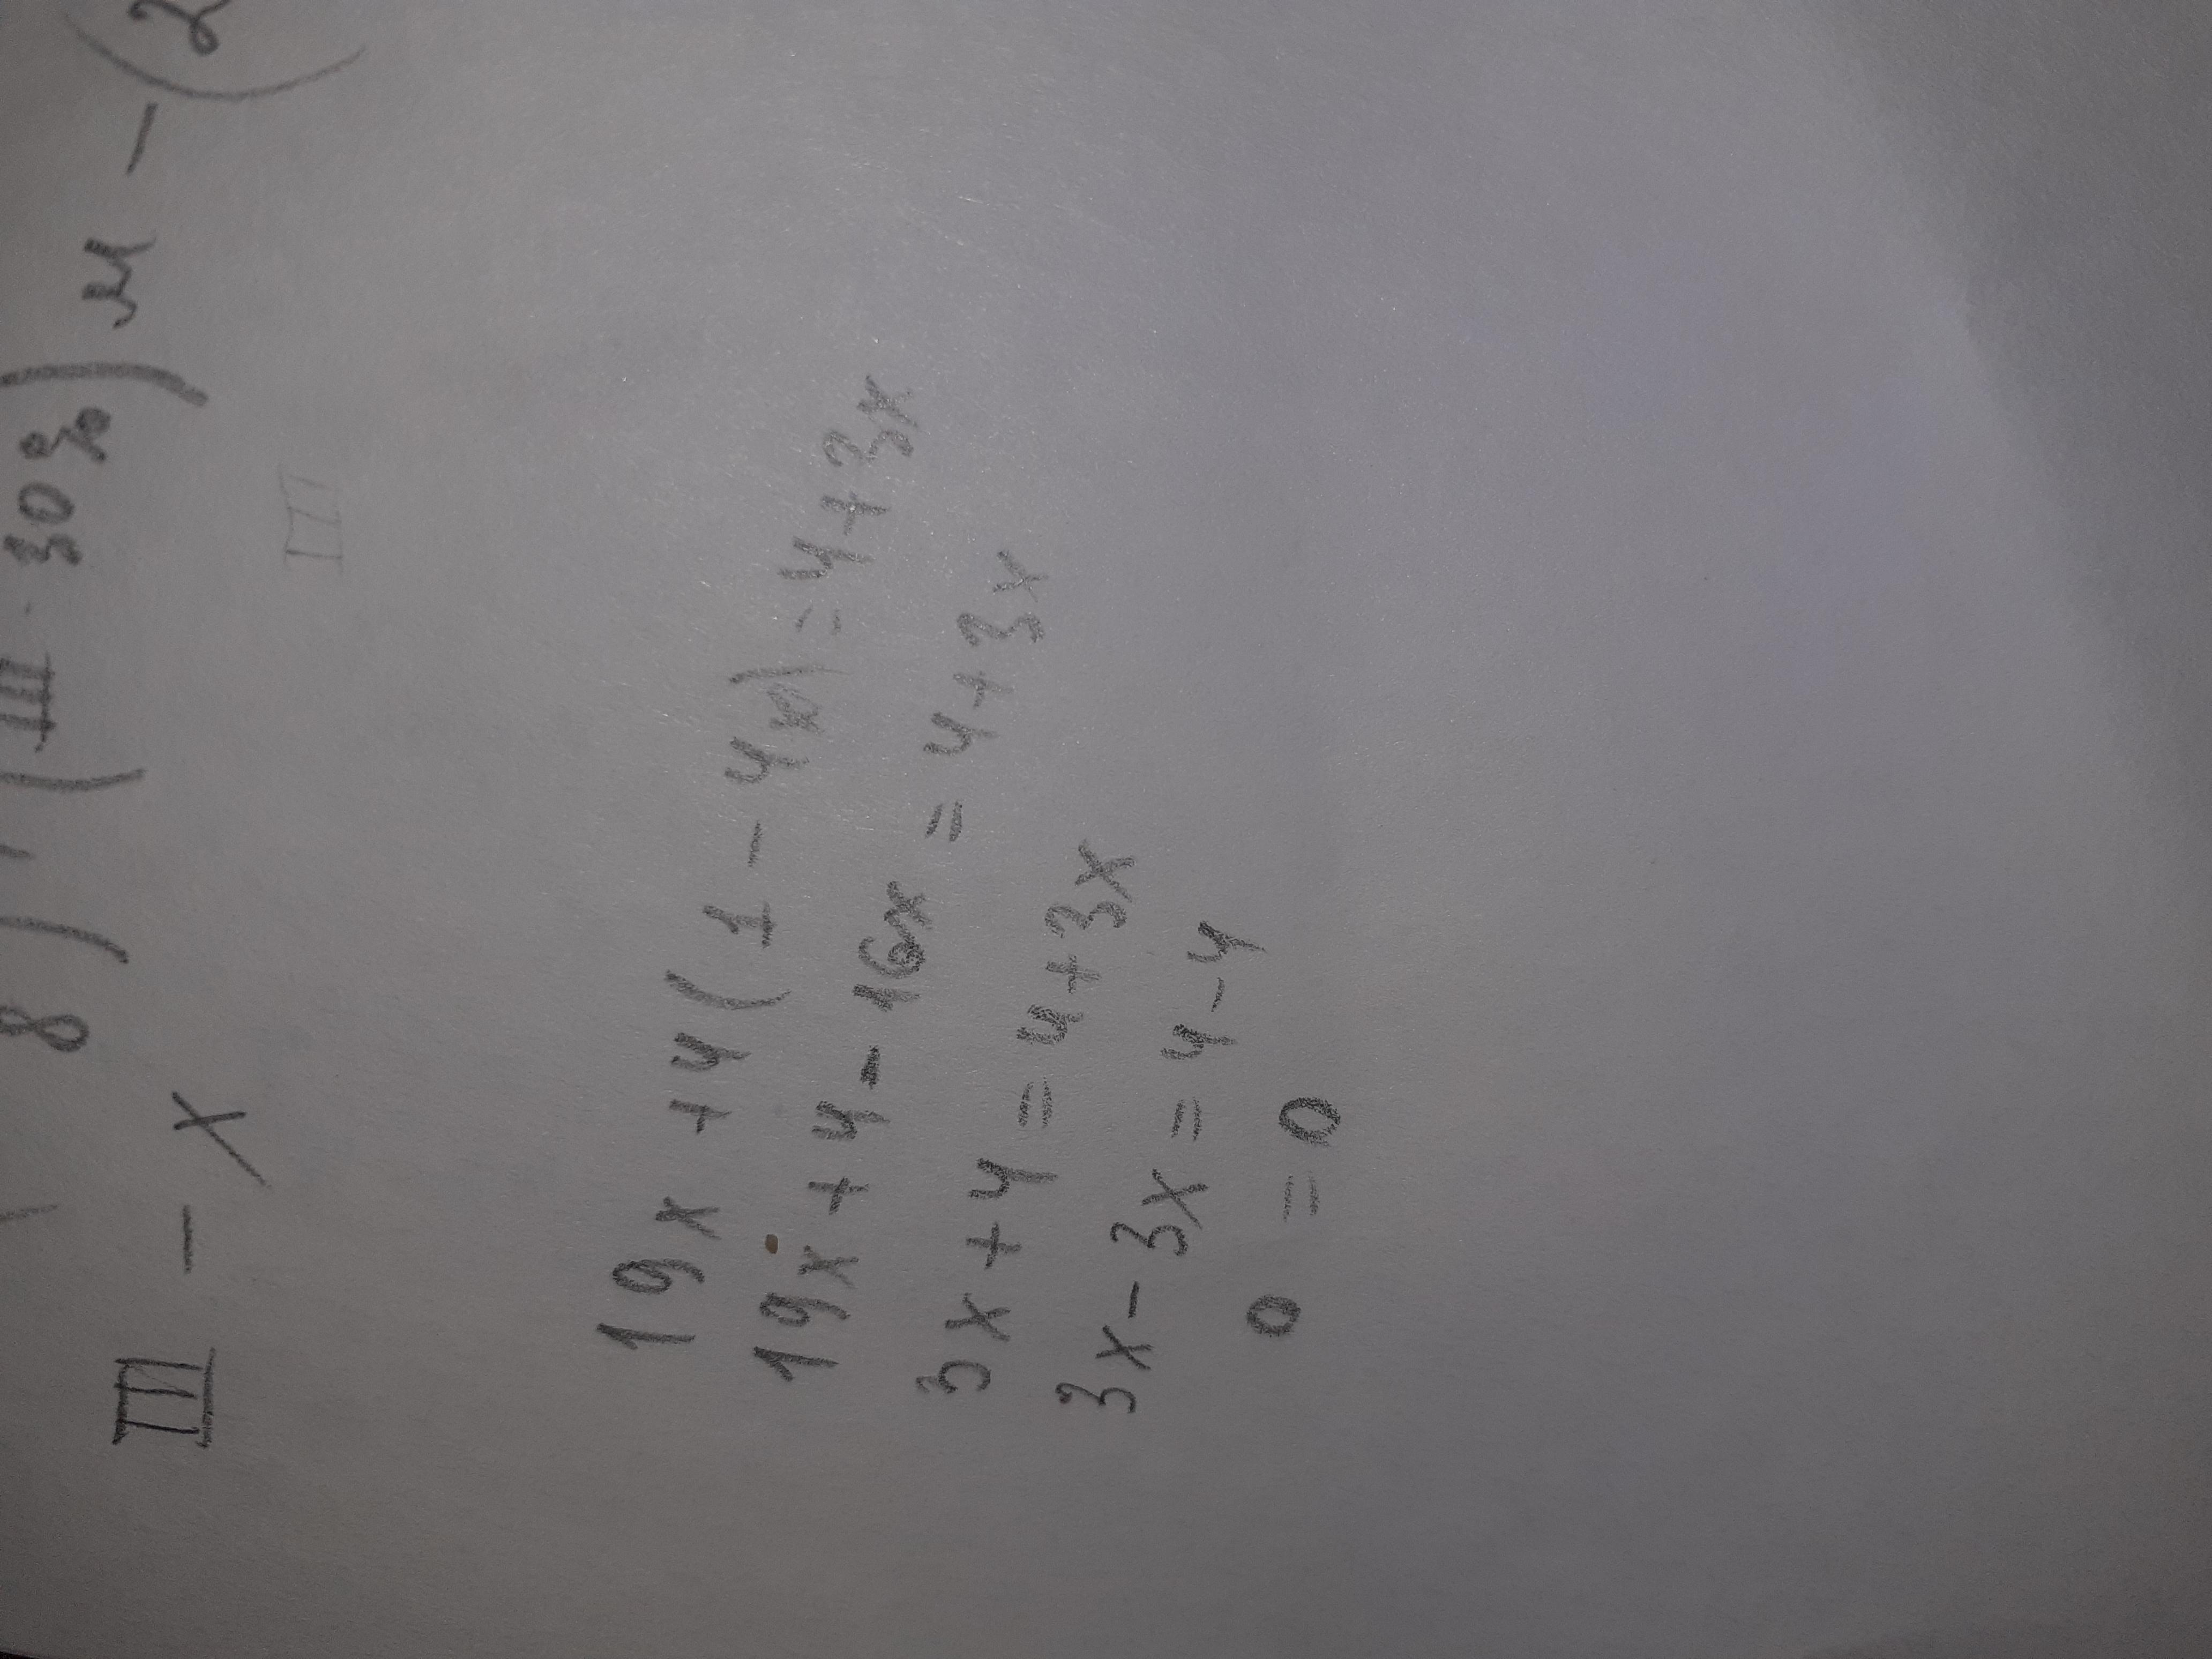 8 ) + (III · 30%) м - (2
III - x
II
19x + 4(1 - 4x) = 4 + 3x
19x + 4 - 16x = 4 + 3x
3x + 4 = 4 + 3x
3x - 3x = 4 - 4
0 = 0